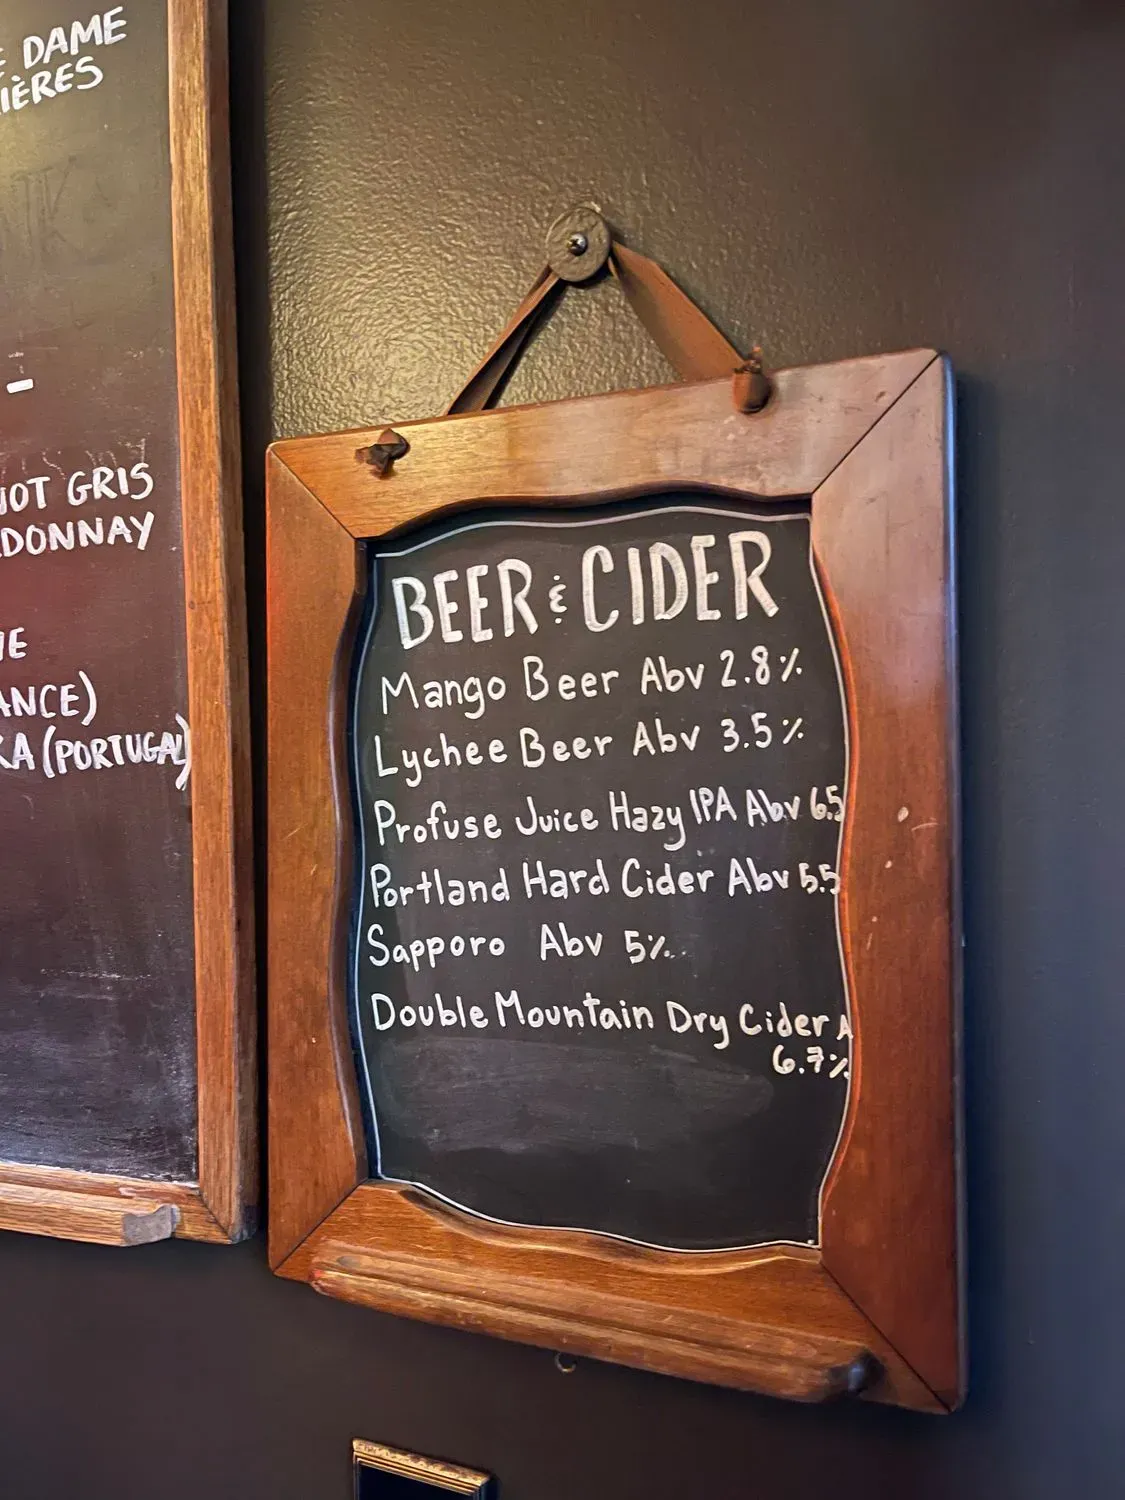 DAME
IÈRES
-
GRIS
DONNAY
ANCE)
KA (PORTUGAL)
BEER & CIDER
Mango Beer Abv 2.8%
Lychee Beer Abv 3.5%
Profuse Juice Hazy IPA Abv 6.5
Portland Hard Cider Abv 5.5
Sapporo Abv 5%
Double Mountain Dry Cider A
6.7%